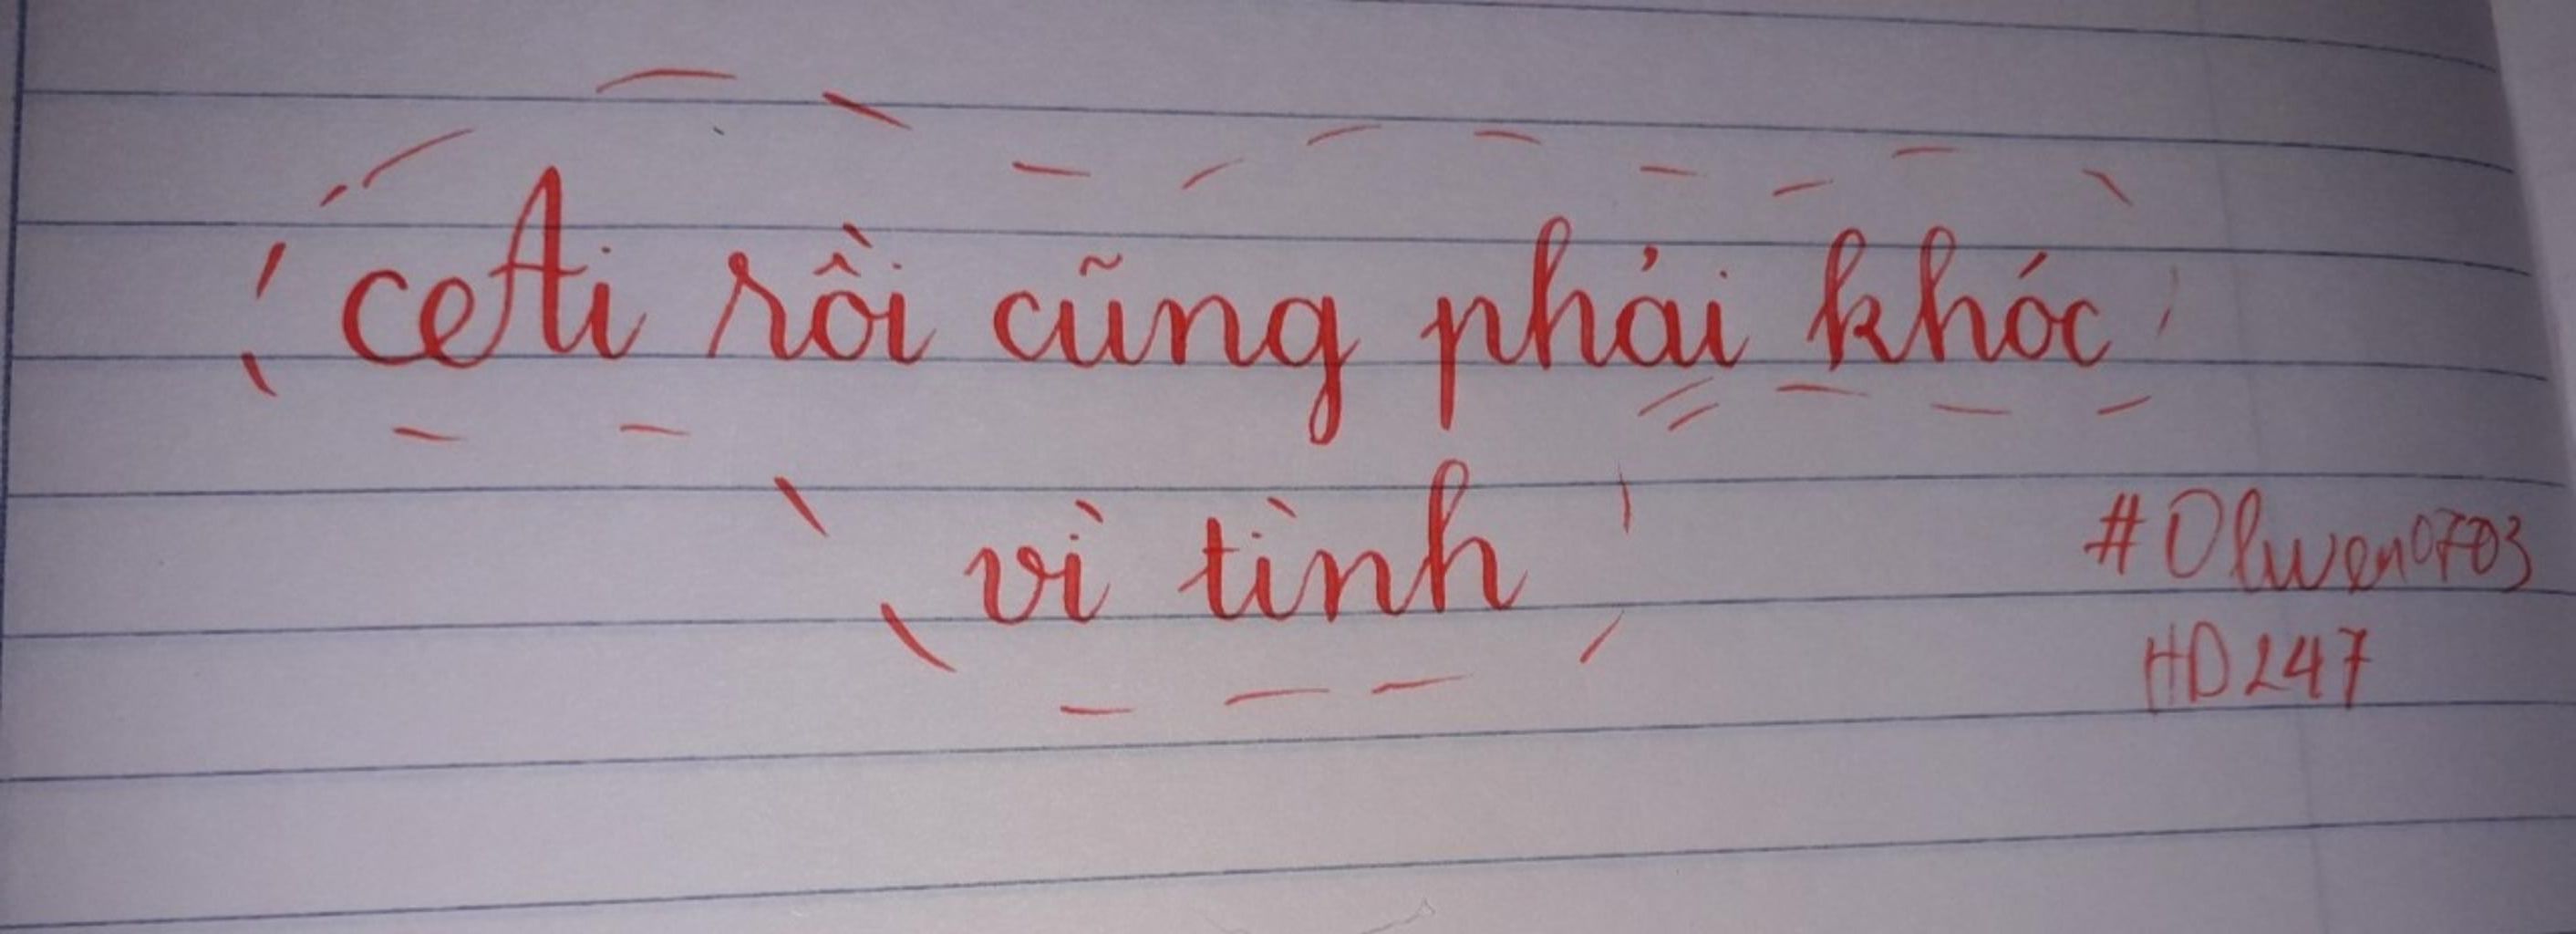 Ai rồi cũng phải khóc
vì tình
#Olwen0703
HD247